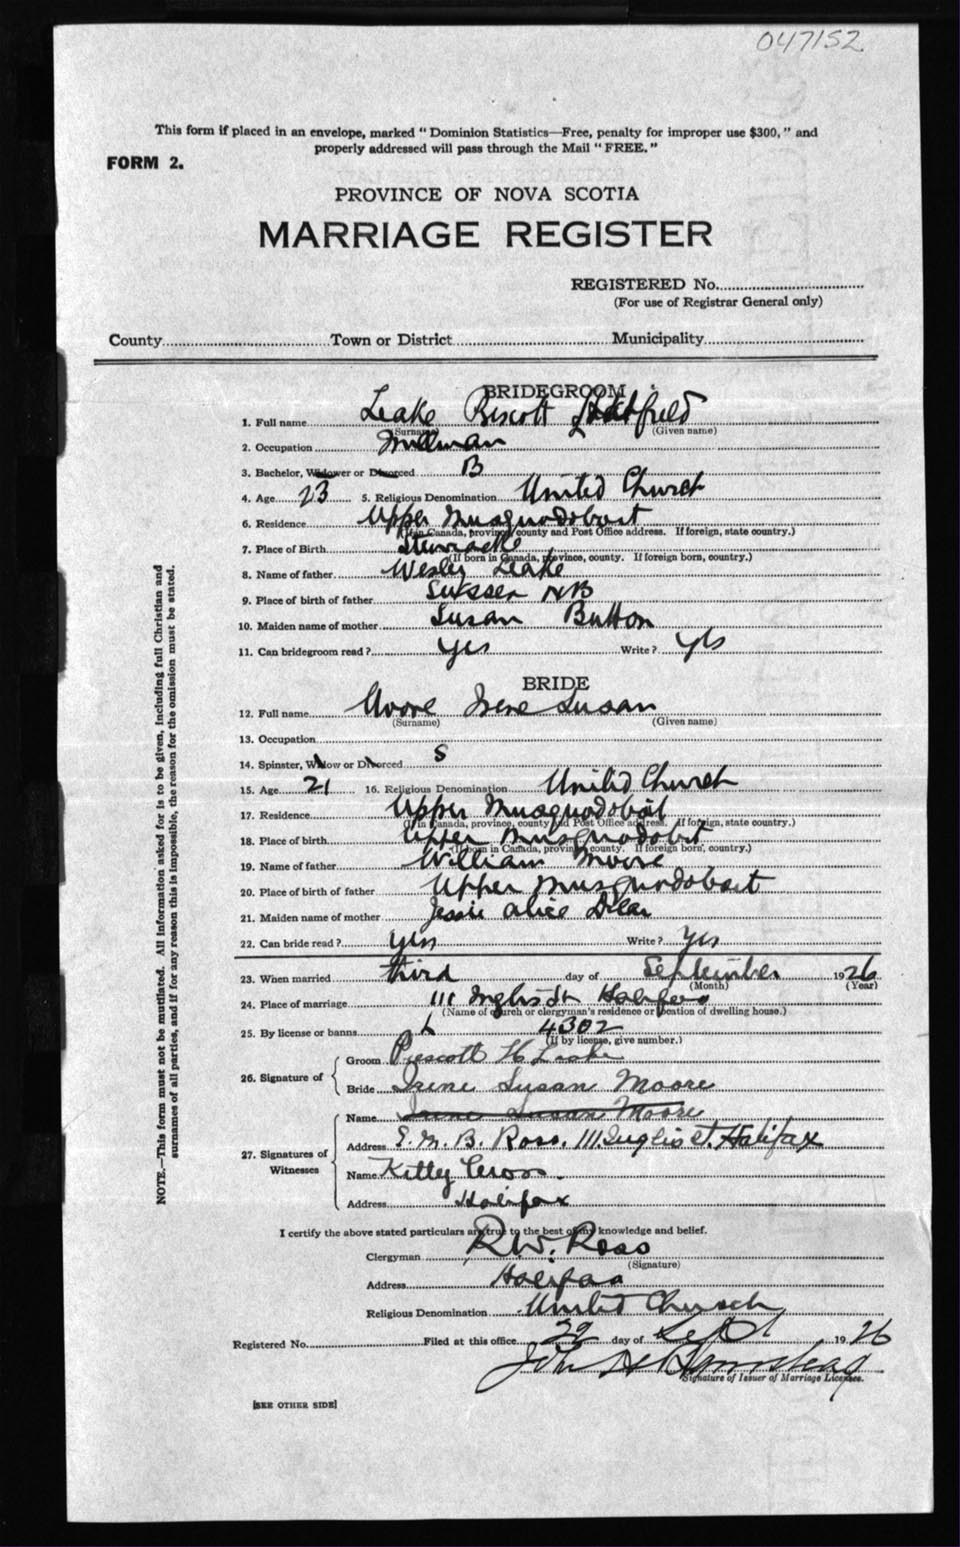 047152
This form if placed in an envelope, marked " Dominion Statistics—Free, penalty for improper use $300, " and
properly addressed will pass through the Mail " FREE. "
FORM 2.
PROVINCE OF NOVA SCOTIA
MARRIAGE REGISTER
REGISTERED No.
(For use of Registrar General only)
County Town or District Municipality
BRIDEGROOM
1. Full name Leake Prescott
(Surname) (Given name)
2. Occupation Millman
3. Bachelor, Widower or Divorced B
4. Age 23 5. Religious Denomination United Church
6. Residence Upper Musquodoboit
(If in Canada, province, county and Post Office address. If foreign, state country.)
7. Place of Birth Stewiacke
(If born in Canada, province, county. If foreign born, country.)
8. Name of father Wesley Leake
9. Place of birth of father Sussex NB
10. Maiden name of mother Susan Button
11. Can bridegroom read ? yes Write ? yes
BRIDE
12. Full name Moore Irene Susan
(Surname) (Given name)
13. Occupation
14. Spinster, Widow or Divorced S
15. Age 21 16. Religious Denomination United Church
17. Residence Upper Musquodoboit
(If in Canada, province, county and Post Office address. If foreign, state country.)
18. Place of birth Upper Musquodobit
(If born in Canada, province, county. If foreign born, country.)
19. Name of father William Moore
20. Place of birth of father Upper Musquodoboit
21. Maiden name of mother Jessie Alice
22. Can bride read ? yes Write ? Yes
23. When married third day of September 1926
(Month) (Year)
24. Place of marriage 111 Inglis St Halifax
(Name of church or clergyman's residence or location of dwelling house.)
25. By license or banns L 4302
(If by license, give number.)
26. Signature of
Groom Prescott H Leake
Bride Irene Susan Moore
27. Signatures of Witnesses
Name Irene Susan Moore
Address E. M. B. Ross. 111 Inglis St. Halifax
Name Kitty Cross.
Address Halifax
I certify the above stated particulars are true to the best of my knowledge and belief.
Clergyman R.W. Ross
(Signature)
Address Halifax
Religious Denomination United Church
Registered No. Filed at this office 22 day of Sept 1926
John H
Signature of Issuer of Marriage Licenses.
[SEE OTHER SIDE]
NOTE.—This form must not be mutilated. All information asked for is to be given, including full Christian and
surnames of all parties, and if for any reason this is impossible, the reason for the omission must be stated.